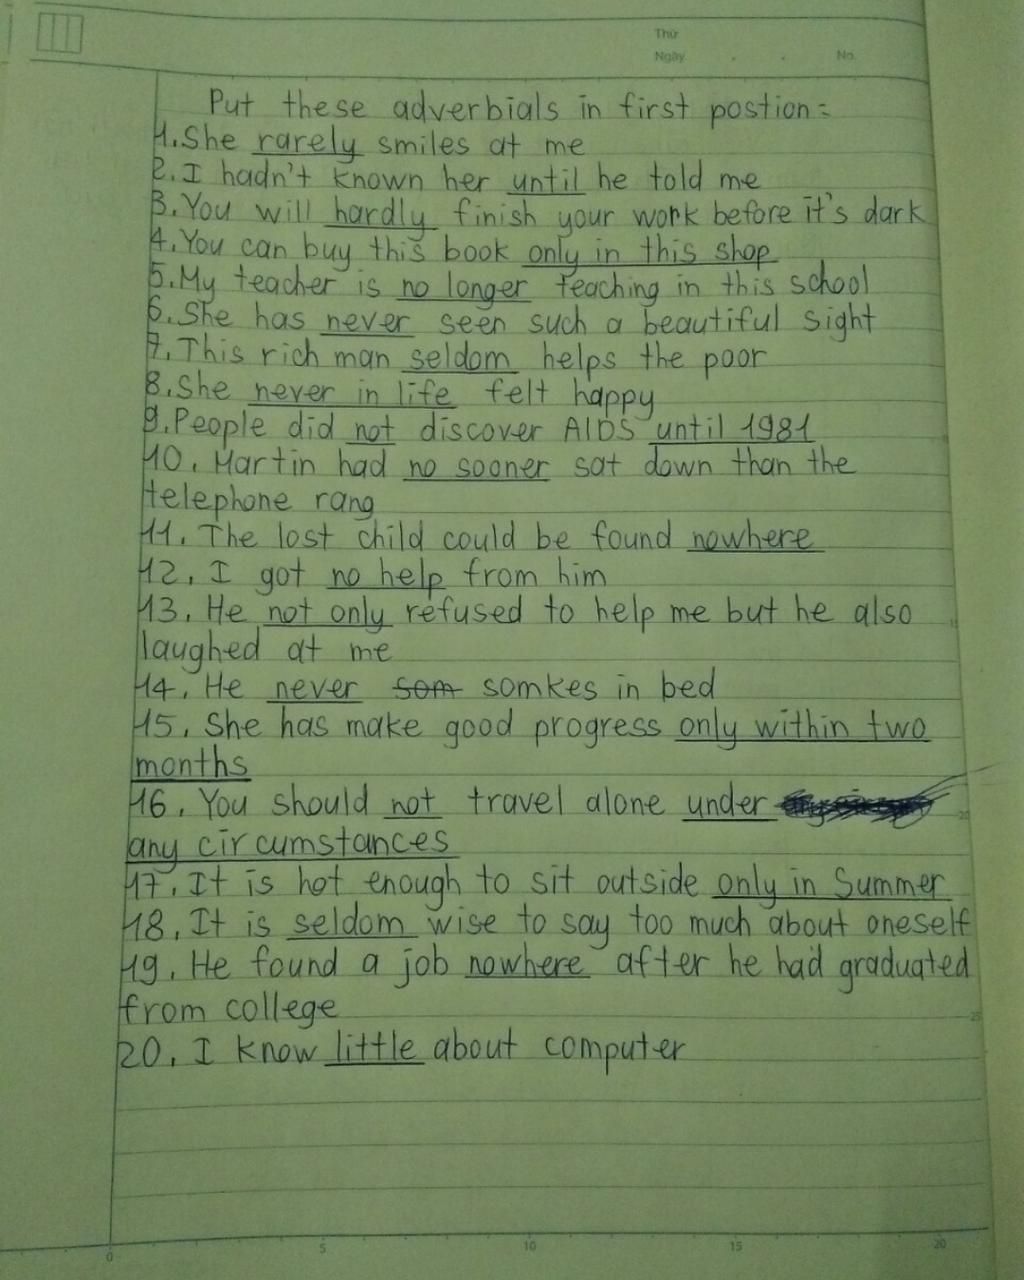 Thứ
Ngày . . No.
Put these adverbials in first postion:
1. She rarely smiles at me
2. I hadn't known her until he told me
3. You will hardly finish your work before it's dark
4. You can buy this book only in this shop
5. My teacher is no longer teaching in this school
6. She has never seen such a beautiful sight
7. This rich man seldom helps the poor
8. She never in life felt happy
9. People did not discover AIDS until 1981
10. Martin had no sooner sat down than the
telephone rang
11. The lost child could be found nowhere
12. I got no help from him
13. He not only refused to help me but he also
laughed at me
14. He never som somkes in bed
15. She has make good progress only within two
months
16. You should not travel alone under
any circumstances
17. It is hot enough to sit outside only in Summer
18. It is seldom wise to say too much about oneself
19. He found a job nowhere after he had graduated
from college
20. I know little about computer
0 5 10 15 20